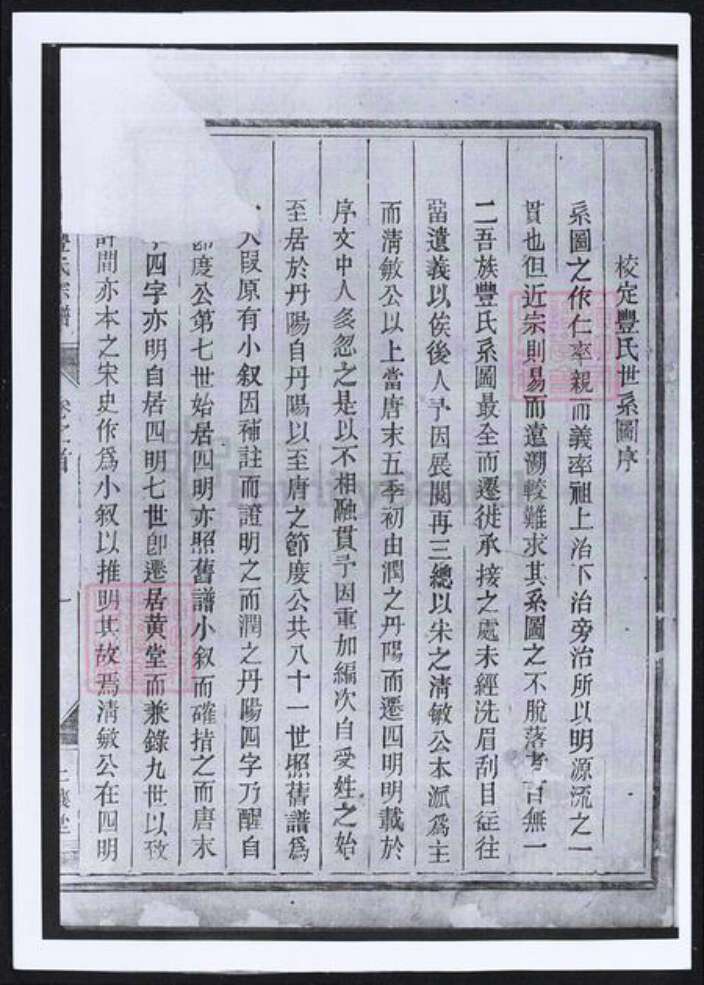 校定豐氏世系圖序
系圖之作仁率親而義率祖上治下治旁治所以明源流之一
貫也但近宗則易而遠溯較難求其系圖之不脫落者百無一
二吾族豐氏系圖最全而遷徙承接之處未經洗眉刮目往往
留遺義以俟後人予因展閱再三總以宋之清敏公本派為主
而清敏公以上當唐末五季初由潤之丹陽而遷四明明載於
序文中人多忽之是以不相融貫予因重加編次自受姓之始
至居於丹陽自丹陽以至唐之節度公共八十一世照舊譜為
大段原有小叙因補註而證明之而潤之丹陽四字乃醒自
節度公第七世始居四明亦照舊譜小叙而確指之而唐末
四字亦明自居四明七世卽遷居黄堂而兼錄九世以致
間亦本之宋史作為小叙以推明其故焉清敏公在四明
豐氏宗譜 卷之首 一